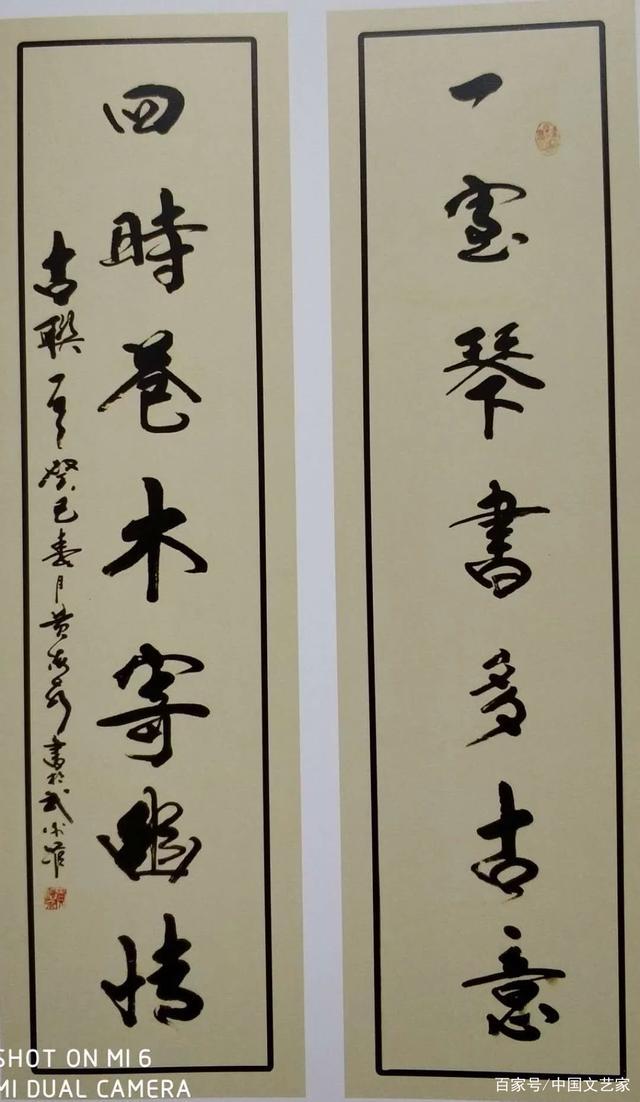 一室琴書多古意
四時木寄幽情
古聯一首癸巳春月黄書於武
SHOT ON MI 6
MI DUAL CAMERA
百家号/中国文艺家